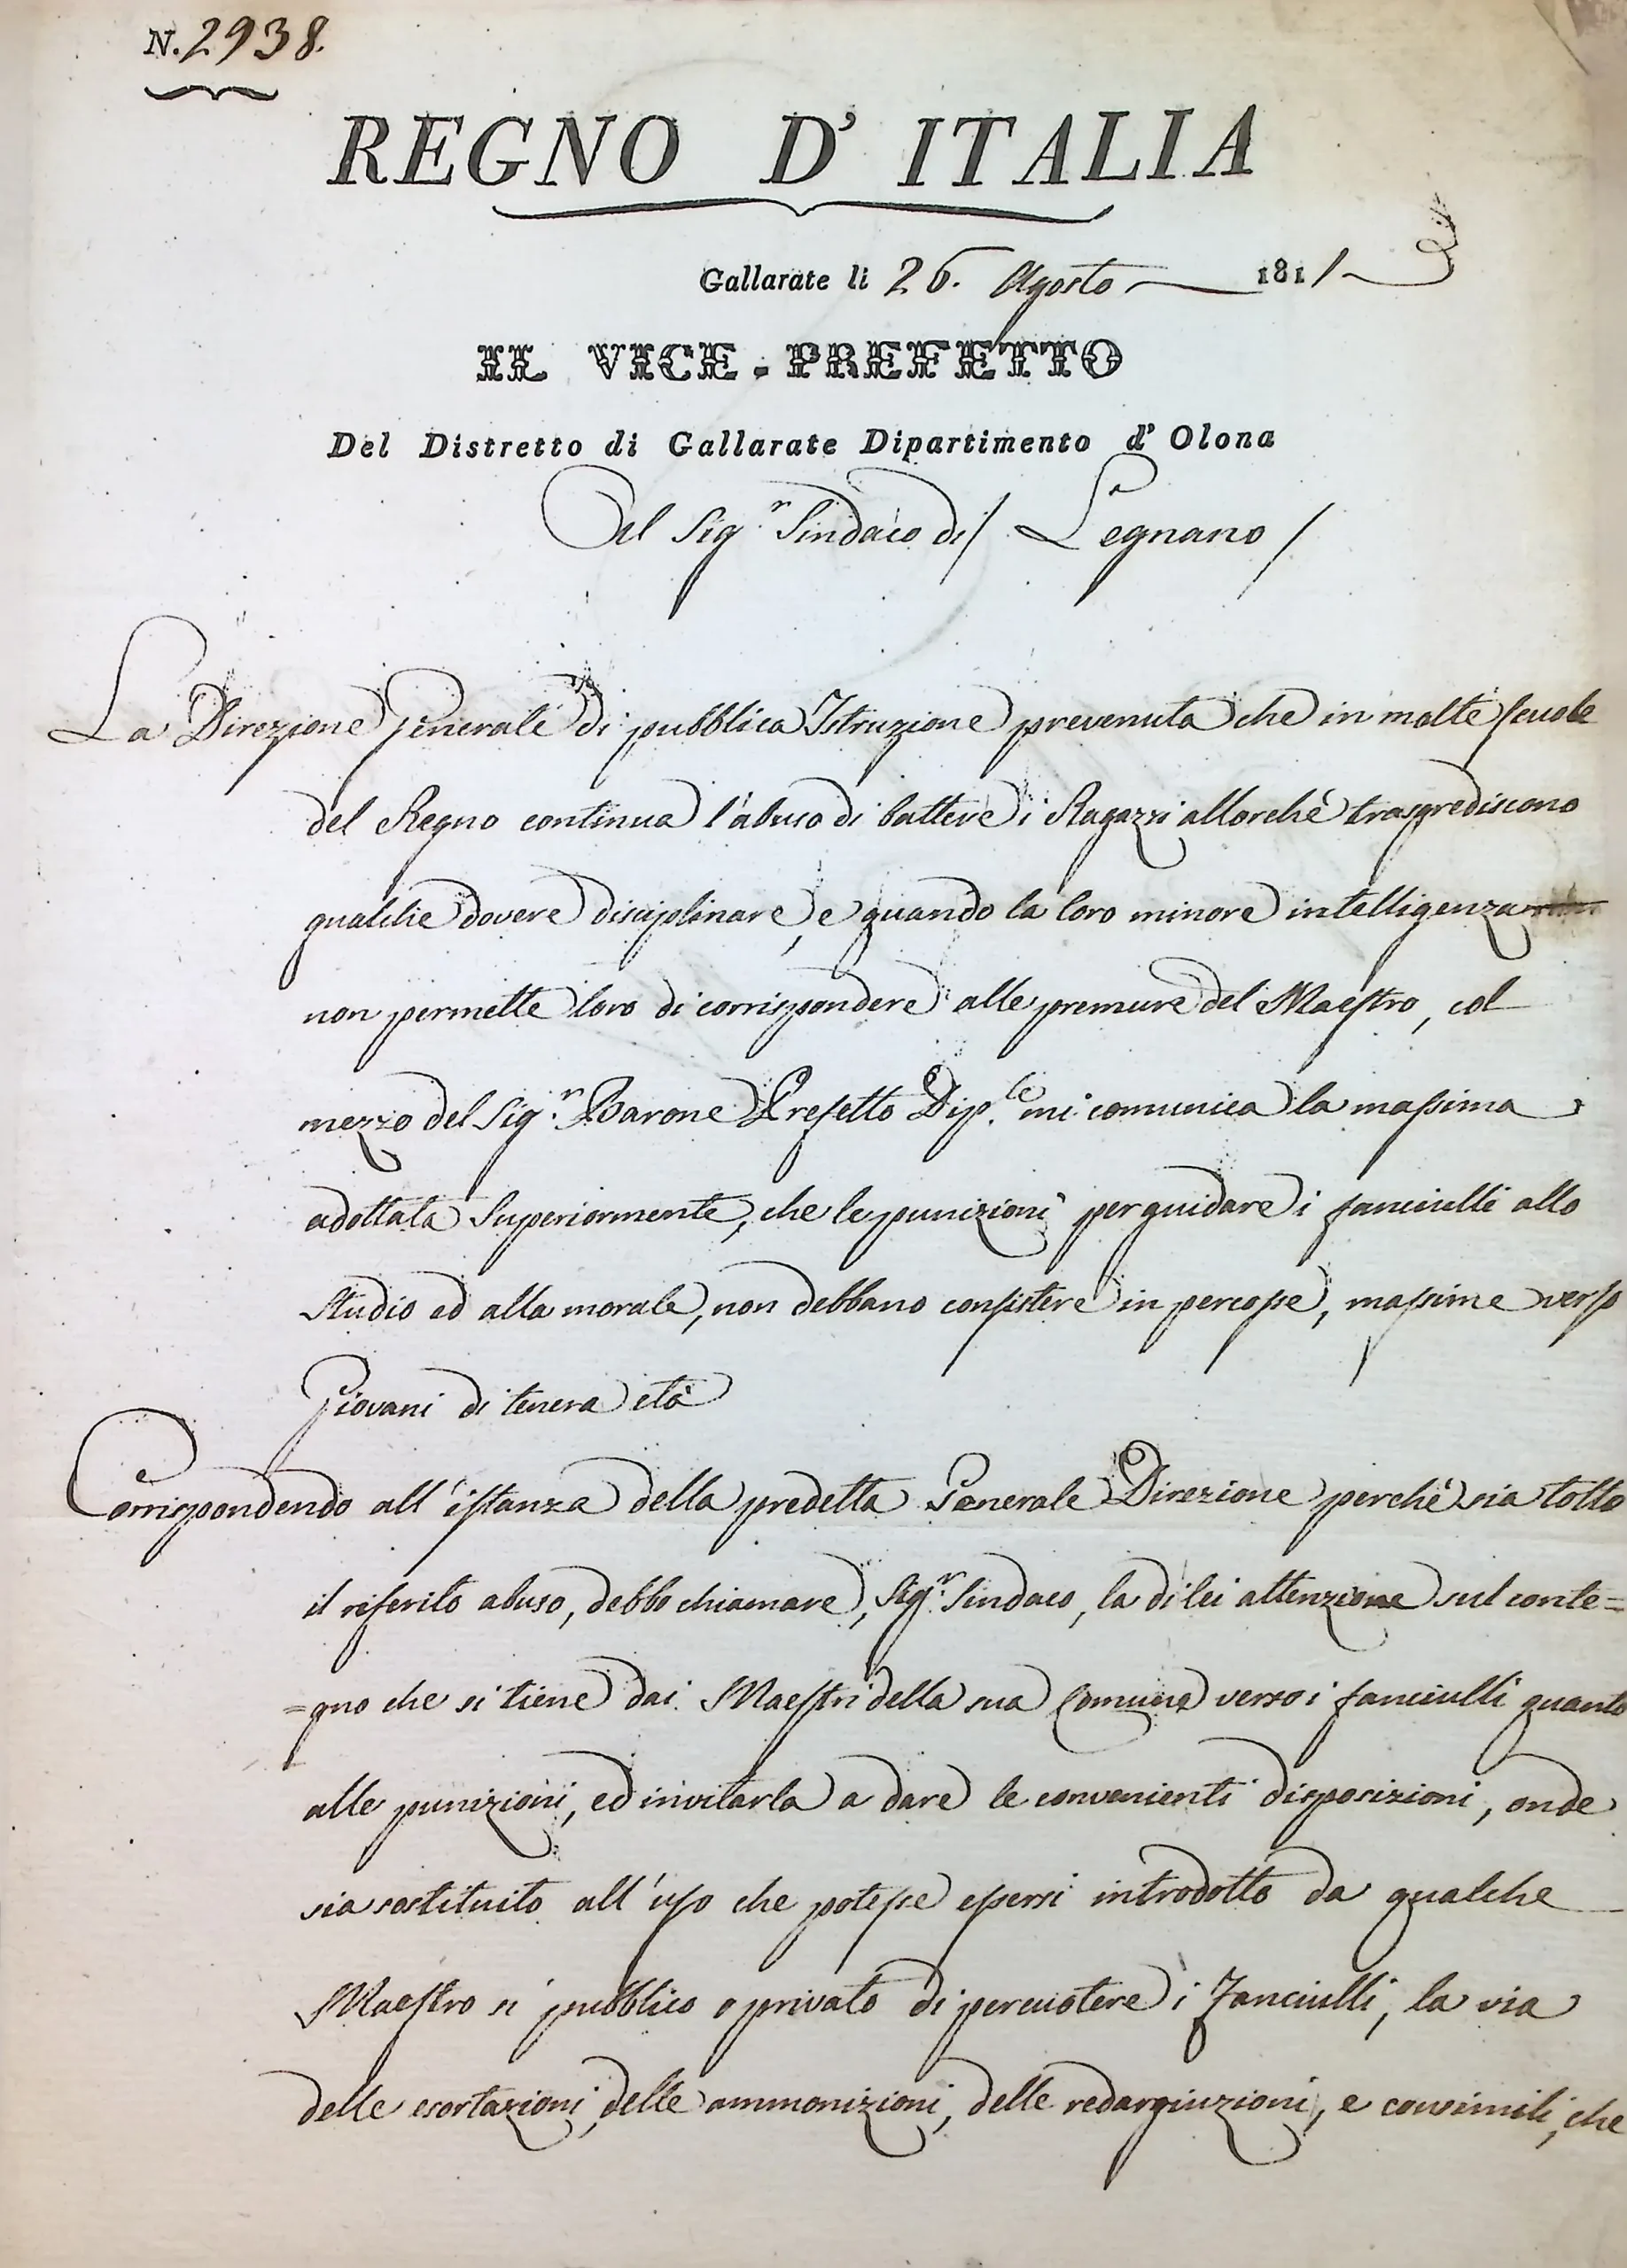 N. 2938.
REGNO D' ITALIA
Gallarate li 26. Agosto 1811
IL VICE-PREFETTO
Del Distretto di Gallarate Dipartimento d' Olona
Al Sig.r Sindaco di / Legnano /
La Direzione Generale di pubblica Istruzione prevenuta che in molte scuole
del Regno continua l'abuso di battere i Ragazzi allorchè trasgrediscono
qualche dovere disciplinare, e quando la loro minore intelligenza
non permette loro di corrispondere alle premure del Maestro, col
mezzo del Sig.r Barone Prefetto Dip.le mi comunica la massima
adottata Superiormente, che le punizioni per guidare i fanciulli allo
Studio ed alla morale, non debbano consistere in percosse, massime verso
Giovani di tenera età
Corrispondendo all'istanza della predetta Generale Direzione perchè sia tolto
il riferito abuso, debbo chiamare, Sig.r Sindaco, la di lei attenzione sul conte=
=gno che si tiene dai Maestri della sua Comune verso i fanciulli quanto
alle punizioni, ed invitarla a dare le convenienti disposizioni, onde
sia sostituito all'uso che potesse essersi introdotto da qualche
Maestro sì pubblico o privato di percuotere i Fanciulli, la via
delle esortazioni, delle ammonizioni, delle redarguizioni, e consimili, che